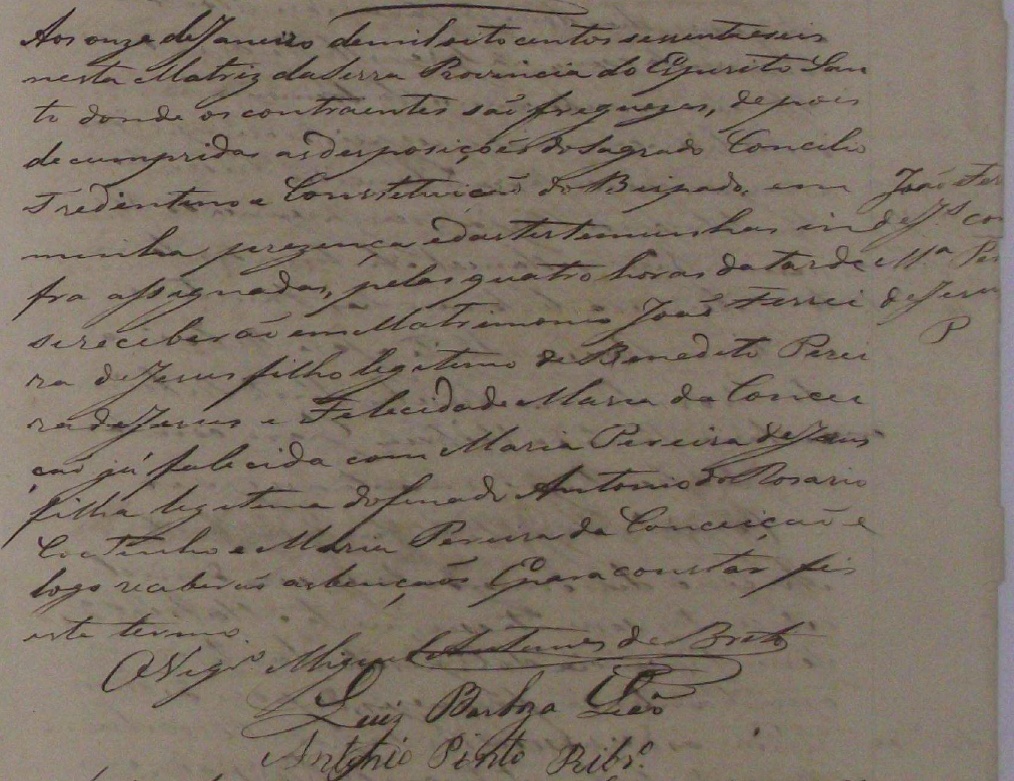 Aos onze de Janeiro de mil oito centos sessenta e seis
nesta Matriz da Serra Provincia do Espirito San
to donde os contraentes são freguezes, depois
de cumpridas as desposições do Sagrado Concilio
Tredentino e Constituição do Bispado, em
minha prezença e das testemunhas in
fra assignadas, pelas quatro horas da tarde
se receberão em Matrimonio João Ferrei
ra de Jesus filho legitimo de Benedito Perei
ra de Jesus e Felecidade Maria da Concei
ção já falecida com Maria Pereira de Jesus
filha legitima do finado Antonio do Rosario
Coutinho e Maria Pereira da Conceição e
logo receberão as bençãos E para constar fis
este termo.
O Vigr.º Miguel Antunes de Brito
Luiz Barboza Leão
Antonio Pinto Ribr.º
João Fer
de Js. co
M.ª Per
de Jesu
P